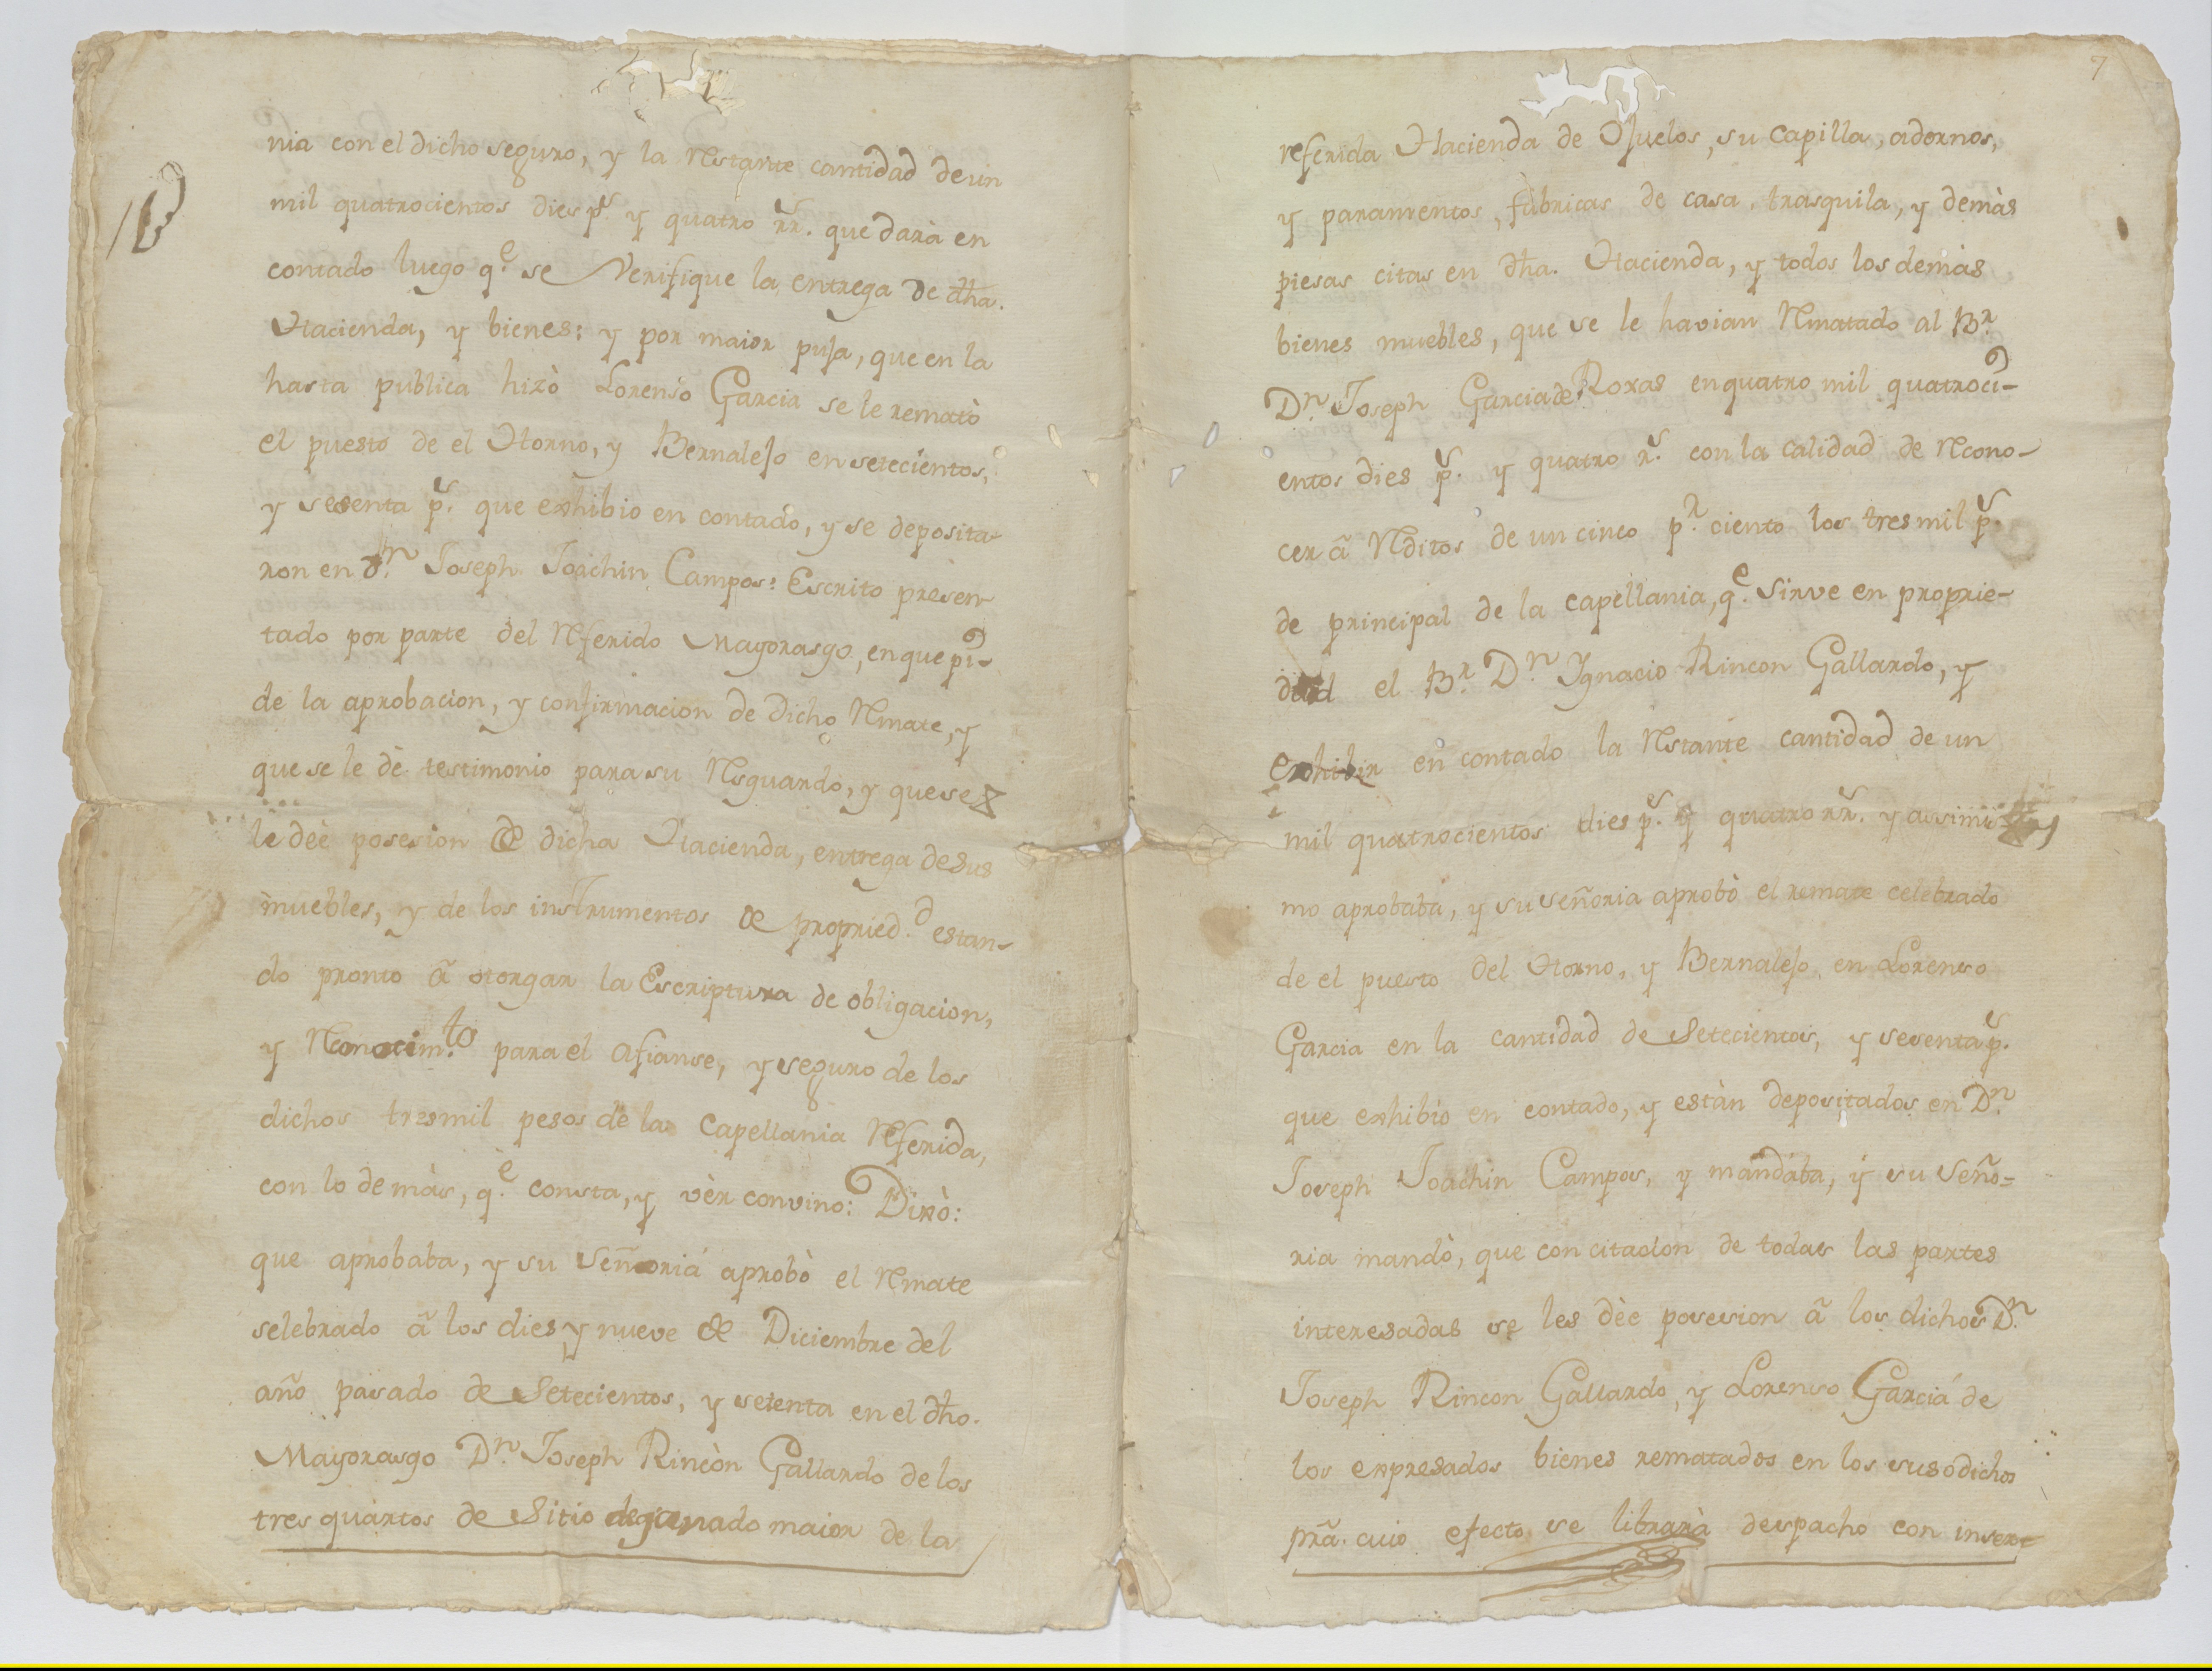 nia con el dicho seguro, y la Restante cantidad de un
mil quatrocientos dies ps. y quatro rrs. que darà en
contado luego qe. se Verifique la entrega de dha.
Hacienda, y bienes: y por maior puja, que en la
hasta publica hizò Lorenso Garcia se le rematò
el puesto de el Horno, y Bernalejo en setecientos,
y sesenta ps. que exhibio en contado, y se deposita-
ron en Dn. Joseph Joachin Campos: Escrito presen-
tado por parte del Referido Mayorasgo, en que pi-
de la aprobacion, y confirmacion de dicho Rmate, y
que se le dè testimonio para su Resguardo, y que se
le dèe posesion de dicha Hacienda, entrega de sus
muebles, y de los instrumentos de propried.d estan-
do pronto â otorgar la Escriptura de obligacion,
y Reconocim.to para el afianse, y seguro de los
dichos tres mil pesos de la Capellania Referida,
con lo demàs, qe. consta, y vèr convino: Dixò:
que aprobaba, y su Señoria aprobò el Rmate
selebrado â los dies y nueve de Diciembre del
año pasado de Setecientos, y setenta en el dho.
Mayorasgo Dn. Joseph Rincòn Gallardo de los
tres quartos de Sitio de ganado maior de la
7
referida Hacienda de Ojuelos, su capilla, adornos,
y paramentos, fabricas de casa, trasquila, y demàs
piesas citas en dha. Hacienda, y todos los demàs
bienes muebles, que se le havian Rmatado al Br.
Dn. Joseph Garcia de Roxas en quatro mil quatroci-
entos dies ps. y quatro rs. con la calidad de Recono-
cer â Reditos de un cinco pr. ciento los tres mil ps.
de principal de la capellania, qe. Sirve en proprie-
dad el Br. Dn. Ygnacio Rincon Gallardo, y
exhibir en contado la Restante cantidad de un
mil quatrocientos dies ps. y quatro rrs. y assimis
mo aprobaba, y su señoria aprobò el remate celebrado
de el puesto del Horno, y Bernalejo en Lorenso
Garcia en la cantidad de Setecientos, y sesenta ps.
que exhibio en contado, y estàn depositados en Dn.
Joseph Joachin Campos, y mandaba, y su Seño=
ria mandò, que con citacion de todas las partes
interesadas se les dèe posesion â los dichos Dn.
Joseph Rincon Gallardo, y Lorenso Garcia de
los expresados bienes rematados en los susodichos
pra. cuio efecto se librarà despacho con inser-